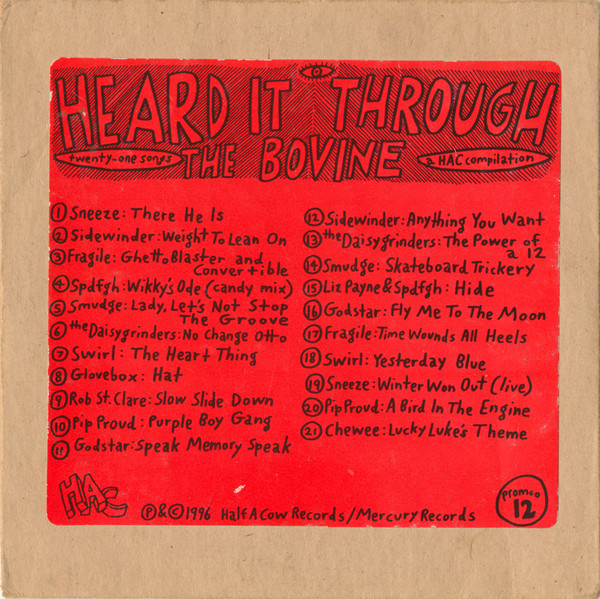 HEARD IT THROUGH
twenty-one songs THE BOVINE a HAC compilation
① Sneeze: There He Is
② Sidewinder: Weight To Lean On
③ Fragile: Ghetto Blaster and
Convertible
④ Spdfgh: Wikky's Ode (candy mix)
⑤ Smudge: Lady, Let's Not Stop
The Groove
⑥ the Daisygrinders: No Change Otto
⑦ Swirl: The Heart Thing
⑧ Glovebox: Hat
⑨ Rob St. Clare: Slow Slide Down
⑩ Pip Proud: Purple Boy Gang
⑪ Godstar: Speak Memory Speak
⑫ Sidewinder: Anything You Want
⑬ the Daisygrinders: The Power of
a 12
⑭ Smudge: Skateboard Trickery
⑮ Liz Payne & Spdfgh: Hide
⑯ Godstar: Fly Me To The Moon
⑰ Fragile: Time Wounds All Heels
⑱ Swirl: Yesterday Blue
⑲ Sneeze: Winter Won Out (live)
⑳ Pip Proud: A Bird In The Engine
㉑ Chewee: Lucky Luke's Theme
HAC
℗&©1996 Half A Cow Records/Mercury Records
promco
12